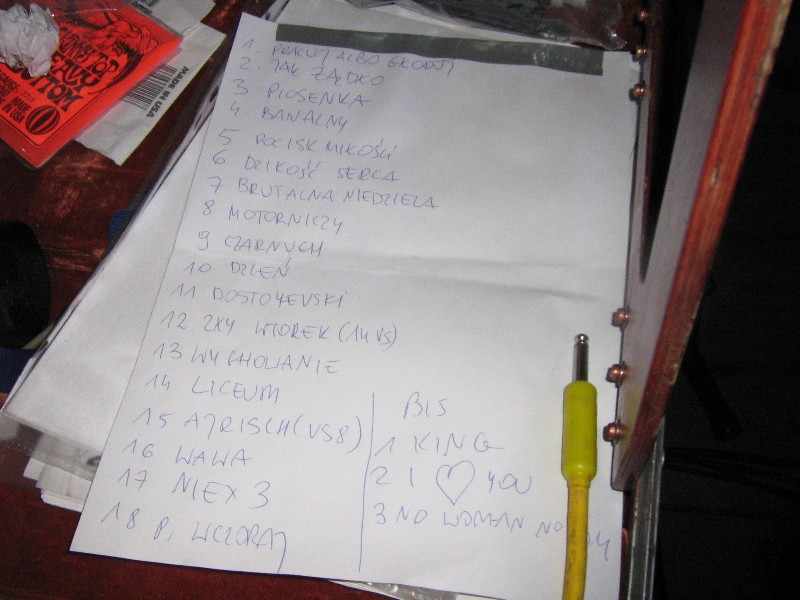 HEAVY
BOTTOM
MADE IN USA
1. PRACUJ ALBO GŁODUJ
2. JAK ŻĄDŁO
3 PIOSENKA
4 BANALNY
5 POCISK MIŁOŚCI
6 DZIKOŚĆ SERCA
7 BRUTALNA NIEDZIELA
8 MOTORNICZY
9 CZARNUCH
10 DZIEŃ
11 DOSTOYEVSKI
12 ZXY WTOREK (14 VS)
13 WYCHOWANIE
14 LICEUM
15 AJRISCH (VS8)
16 WAWA
17 NIEX 3
18 P. WCZORAJ
BIS
1 KING
2 I ♡ YOU
3 NO WOMAN NO